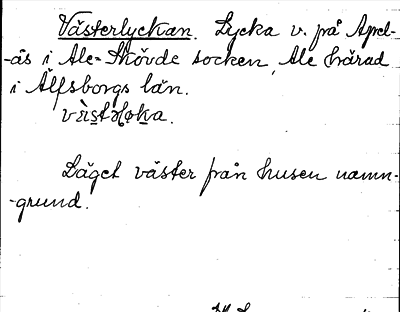 Västerlyckan. Lycka v. på Apel-
-ås i Ale-Skövde socken, Ale härad
i Älfsborgs län.
Läget väster från husen namn-
-grund.